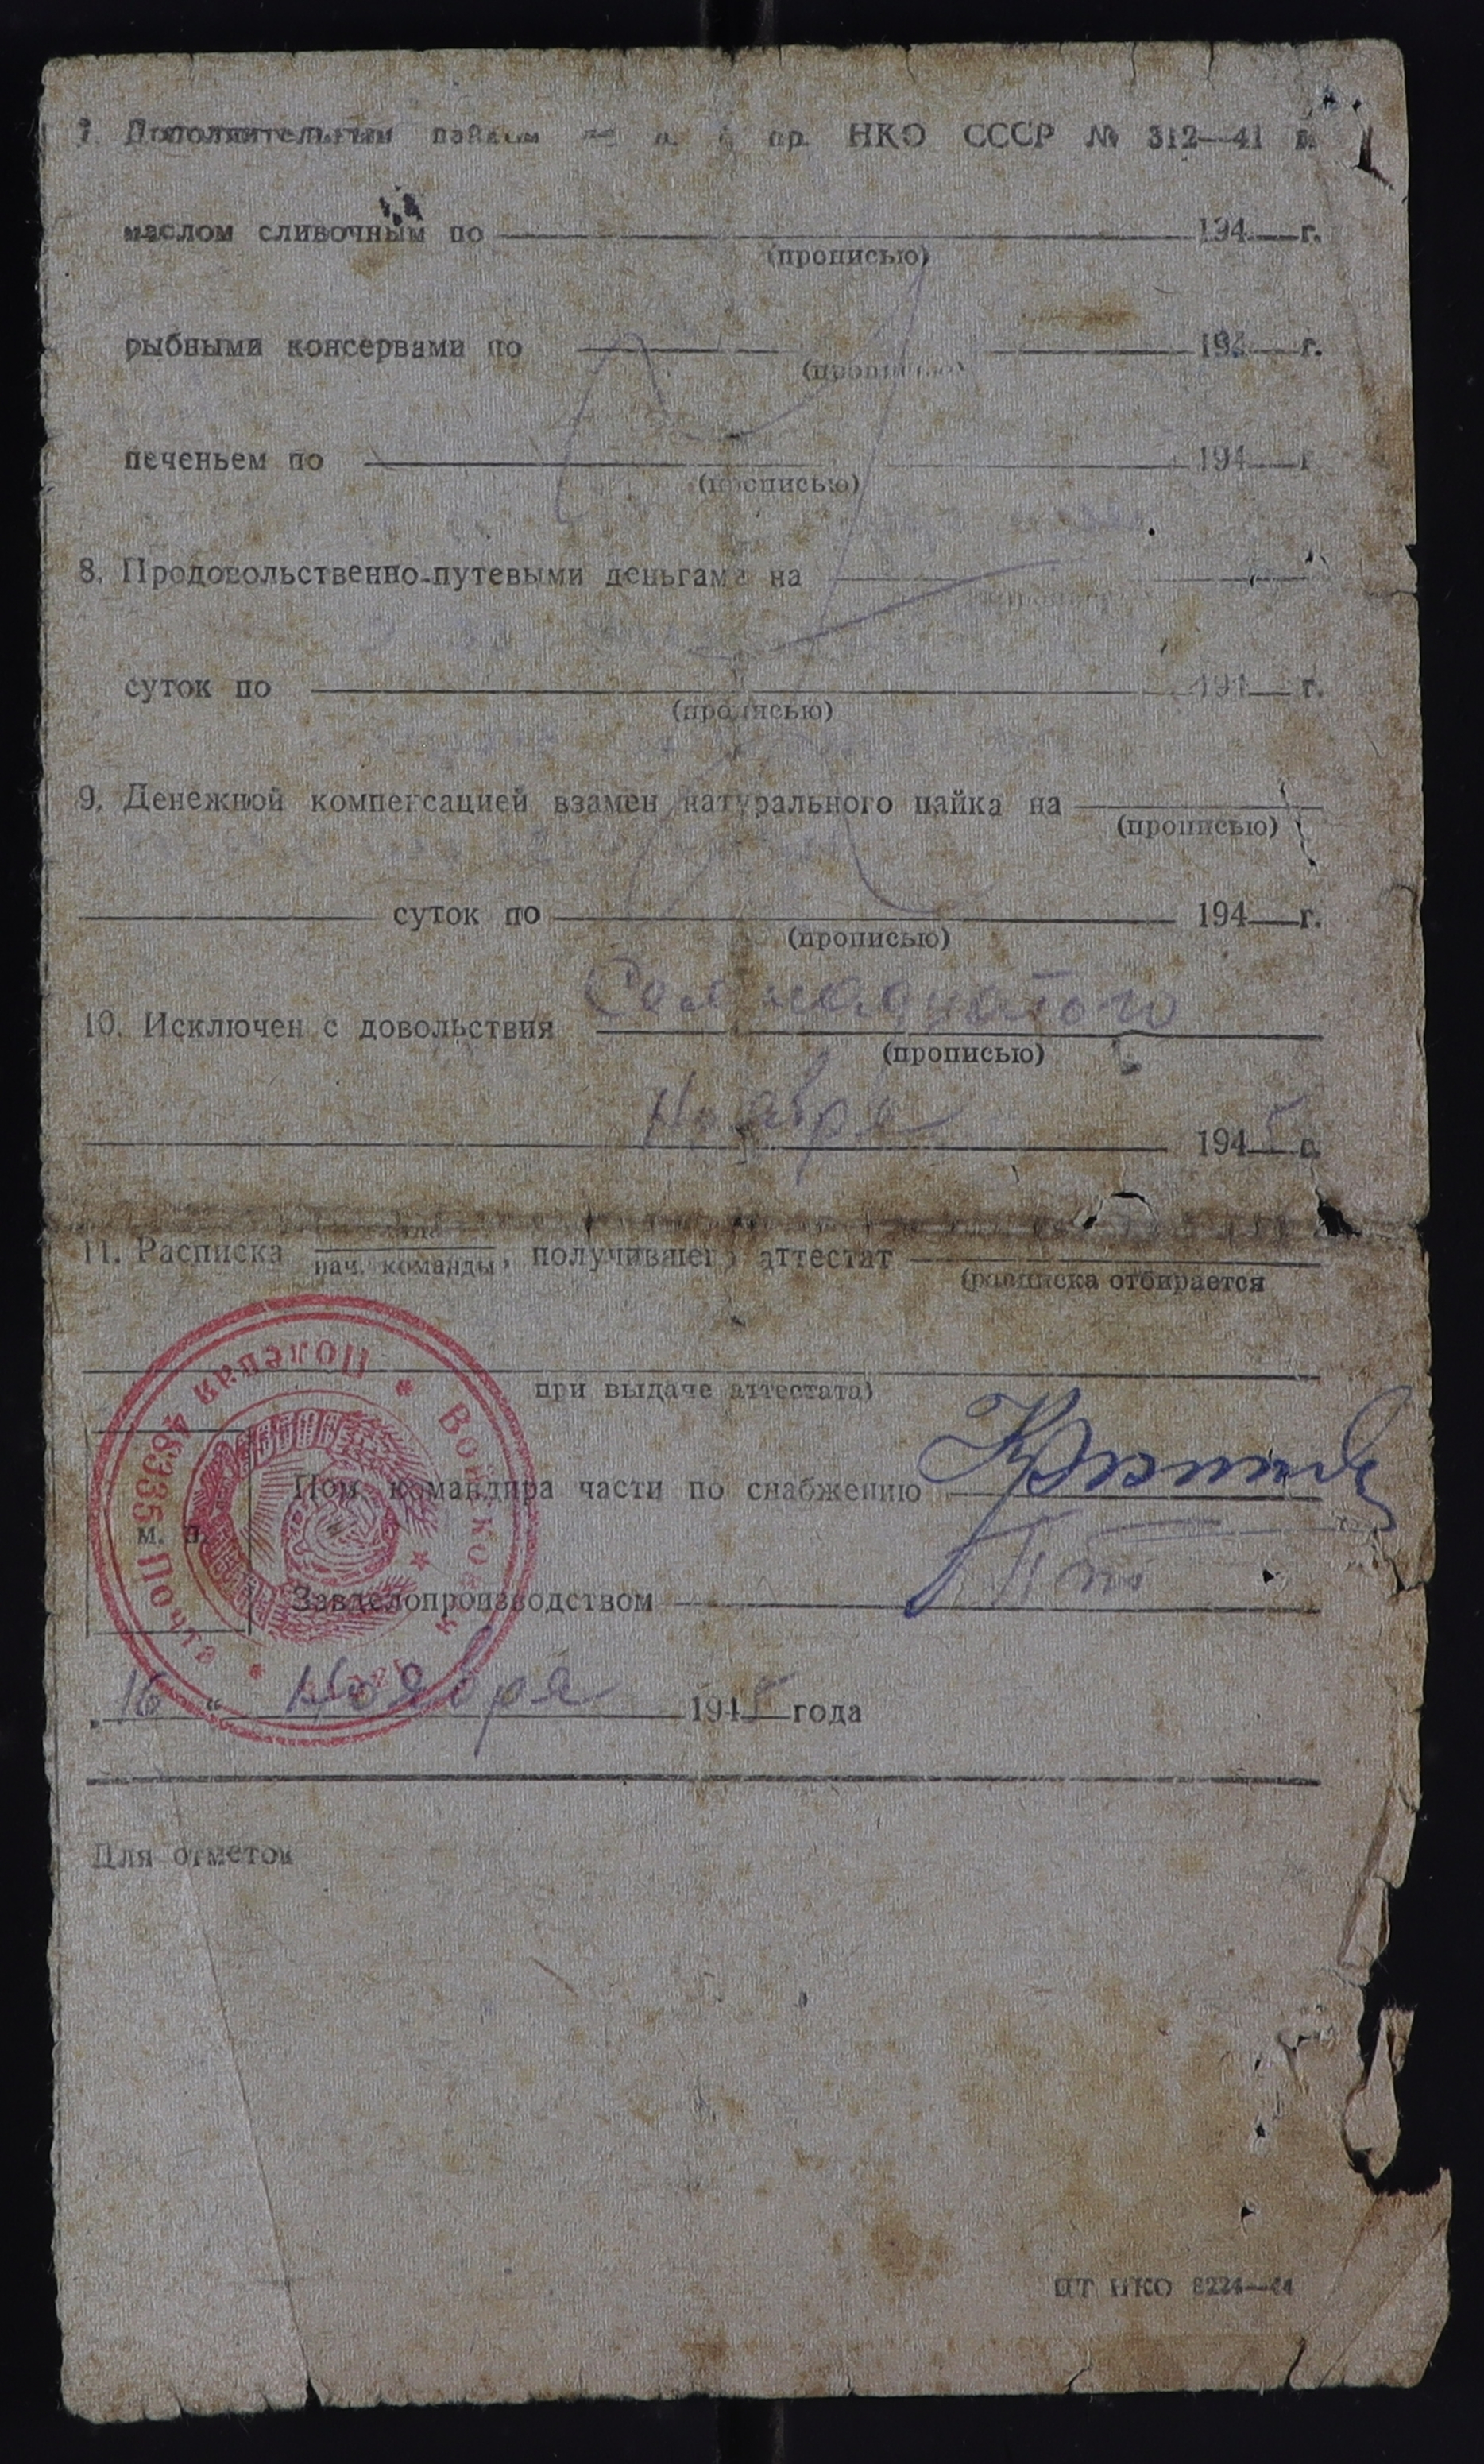 7. Дополнительным пайком по п. 6 пр. НКО СССР № 312—41 г.
маслом сливочным по 194 г.
(прописью)
рыбными консервами по 194 г.
(прописью)
печеньем по 194 г
(прописью)
8. Продовольственно-путевыми деньгами на
суток по 194 г.
(прописью)
9. Денежной компенсацией взамен натурального пайка на
(прописью)
суток по 194 г.
(прописью)
10. Исключен с довольствия Семнадцатого
(прописью)
Ноября 1945 г.
11. Расписка нач. команды, получившего аттестат
(расписка отбирается
при выдаче аттестата)
Войсковая часть * Полевая Почта 48335 *
Пом. командира части по снабжению
м. п.
Завделопроизводством
„16“ Ноября 1945 года
Для отметок
ЦТ НКО 8224—44